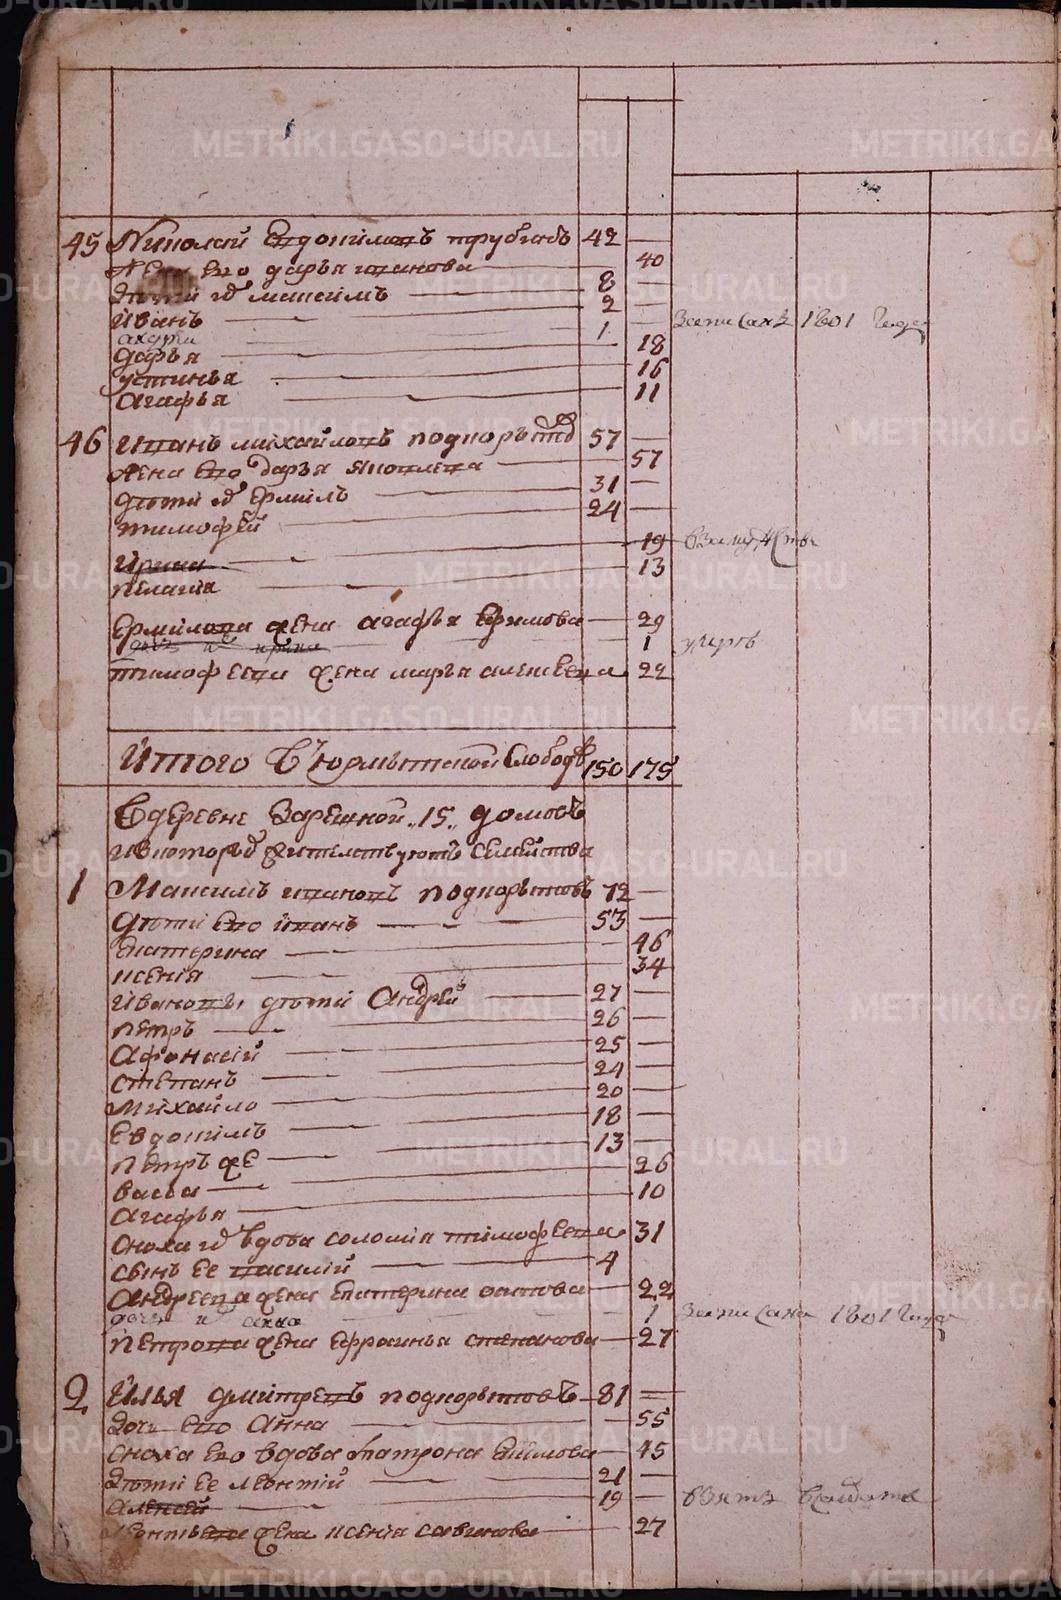 45 Николай Евдокимовъ трубинъ 42 —
Жена ево дарья иванова 40
дѣти их максимъ 8
Иванъ 2
1 записанъ 1801 года
дарья 18
устинья 16
агафья 11
46 иванъ михайловъ подкорытов 57 —
Жена ево дарья яковлева 57
дѣти их ермилъ 31 —
тимофей 24 —
Ирина 19 взамужство
пелагия 13
Ермилова жена агафья Ефимова 29
дочь их ирина 1 умерла
тимофеева жена марья алексеева 22
Итого в Юрмытской Слободѣ 150 175
Вдеревне Зарешной „15„ домовъ
ивкоторых жителствуютъ Семейства
1 Максимъ ивановъ подкорытовъ 72 —
дѣти ево иванъ 53 —
екатерина 46
ксения 34
Ивановы дѣти Андрей 27 —
петръ 26 —
Афонасий 25 —
степанъ 24 —
михайло 20 —
Евдокимъ 18 —
петръ же 13 —
васса 26
агафья 10
сноха их вдова соломия тимофеева 31
сынъ ее василий 4
Андреева жена Екатерина 22
дочь их анна 1 записана 1801 года
петрова жена Ефросинья степанова 27
2 Илья дмитревъ подкорытовъ 81 —
дочь ево Анна 55
сноха ево вдова матрона Екимова 45
дѣти ее леонтий 21 —
алексей 19 — взятъ всолдаты
леонтьева жена ксения савинова 27
METRIKI.GASO-URAL.RU